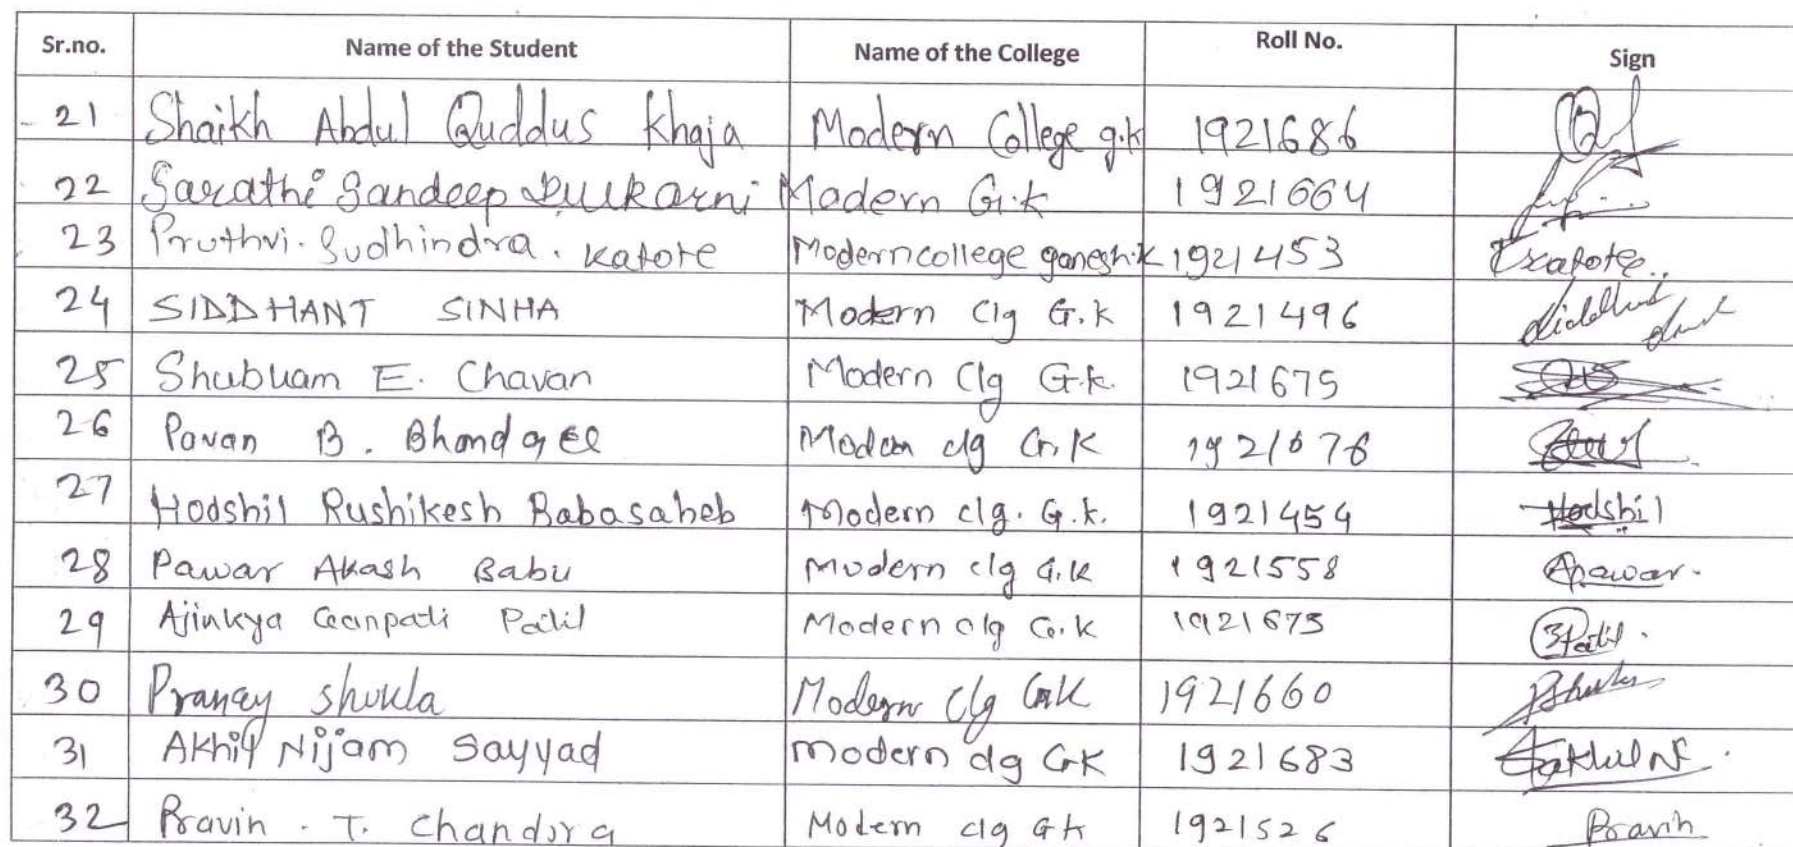 Sr.no. Name of the Student Name of the College Roll No. Sign
21 Shaikh Abdul Quddus Khaja Modern College g.k 1921686
22 Sarathi Sandeep Kulkarni Modern G.k 1921664
23 Pruthvi. Sudhindra. Katore Modern college ganesh.k 1921453
24 SIDDHANT SINHA Modern Clg G.K 1921496
25 Shubham E. Chavan Modern Clg G.k. 1921675
26 Pavan B. Modern clg G.K
27 Hodshil Rushikesh Babasaheb Modern clg. G.k. 1921454 Hodshil
28 Pawar Akash Babu Modern clg G.K 1921558 Apawar.
29 Ajinkya Ganpati Patil Modern clg G.K 1921673 Patil.
30 Pranay shukla Modern Clg G.K 1921660
31 Akhil Nijam Sayyad Modern clg G.K 1921683
32 Pravin . T. Chandora Modern clg G K 1921526 Pravin